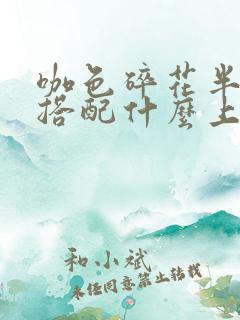 咖色碎花半
搭配什麼上
和小斌
未经同意禁止转载